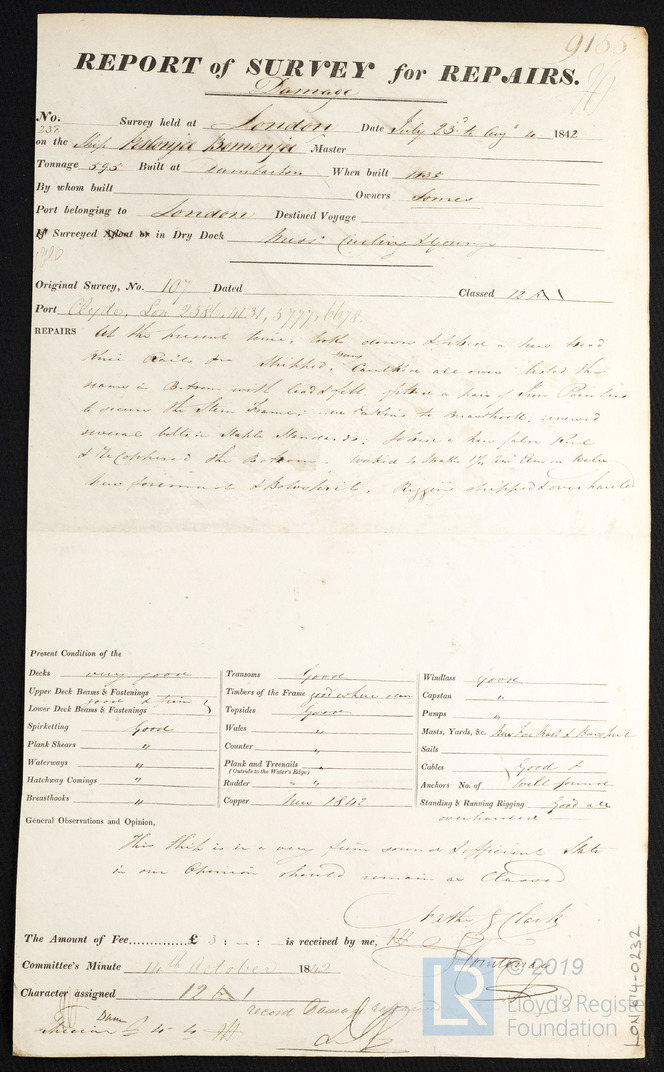 9155
REPORT of SURVEY for REPAIRS.
Damage
No. 238 Survey held at London Date July 23d to Augt 4 1842
on the Ship Pestonjee Bomanjee Master
Tonnage 595 Built at Dumbarton When built 1835
By whom built Owners Somes
Port belonging to London Destined Voyage
If Surveyed Afloat or in Dry Dock Messrs Curling & Young
Original Survey, No. 107 Dated Classed 12 A 1
Port Clyde, Lon 2586, 4131, 5777, 6678.
REPAIRS At the present time, took down & fitted a new head
Knee Rails &c Shipped, Caulked all over listed the
seams in Bottom with lead & felt fitted a pair of Iron
to secure the Stem Frame; new to ; renewed
several bolts in Staple Standards; a new false Keel
& ReCoppered the Bottom. worked 4 Elm on Wales
New foremast & Bowsprit. Rigging stripped & overhauled
Present Condition of the
Decks very good
Upper Deck Beams & Fastenings
Lower Deck Beams & Fastenings good & firm
Spirketting Good
Plank Shears "
Waterways "
Hatchway Comings "
Breasthooks "
Transoms Good
Timbers of the Frame good where seen
Topsides Good
Wales "
Counter "
Plank and Treenails "
(Outside to the Water's Edge)
Rudder " "
Copper New 1842
Windlass Good
Capstan "
Pumps "
Masts, Yards, &c. New Fore Mast & Bowsprit
Sails
Cables Good &
Anchors No. of Well found
Standing & Running Rigging Good all
overhauled
General Observations and Opinion,
This Ship is in a very firm sound & efficient State
in our Opinion should remain as Classed
Nathl G Clark
The Amount of Fee..............£ 3 : — : — is received by me,
Committee's Minute 14th October 1842
Character assigned 12 A 1
record Damage repaired
© 2019
Lloyd's Register
Foundation
LON614-0232